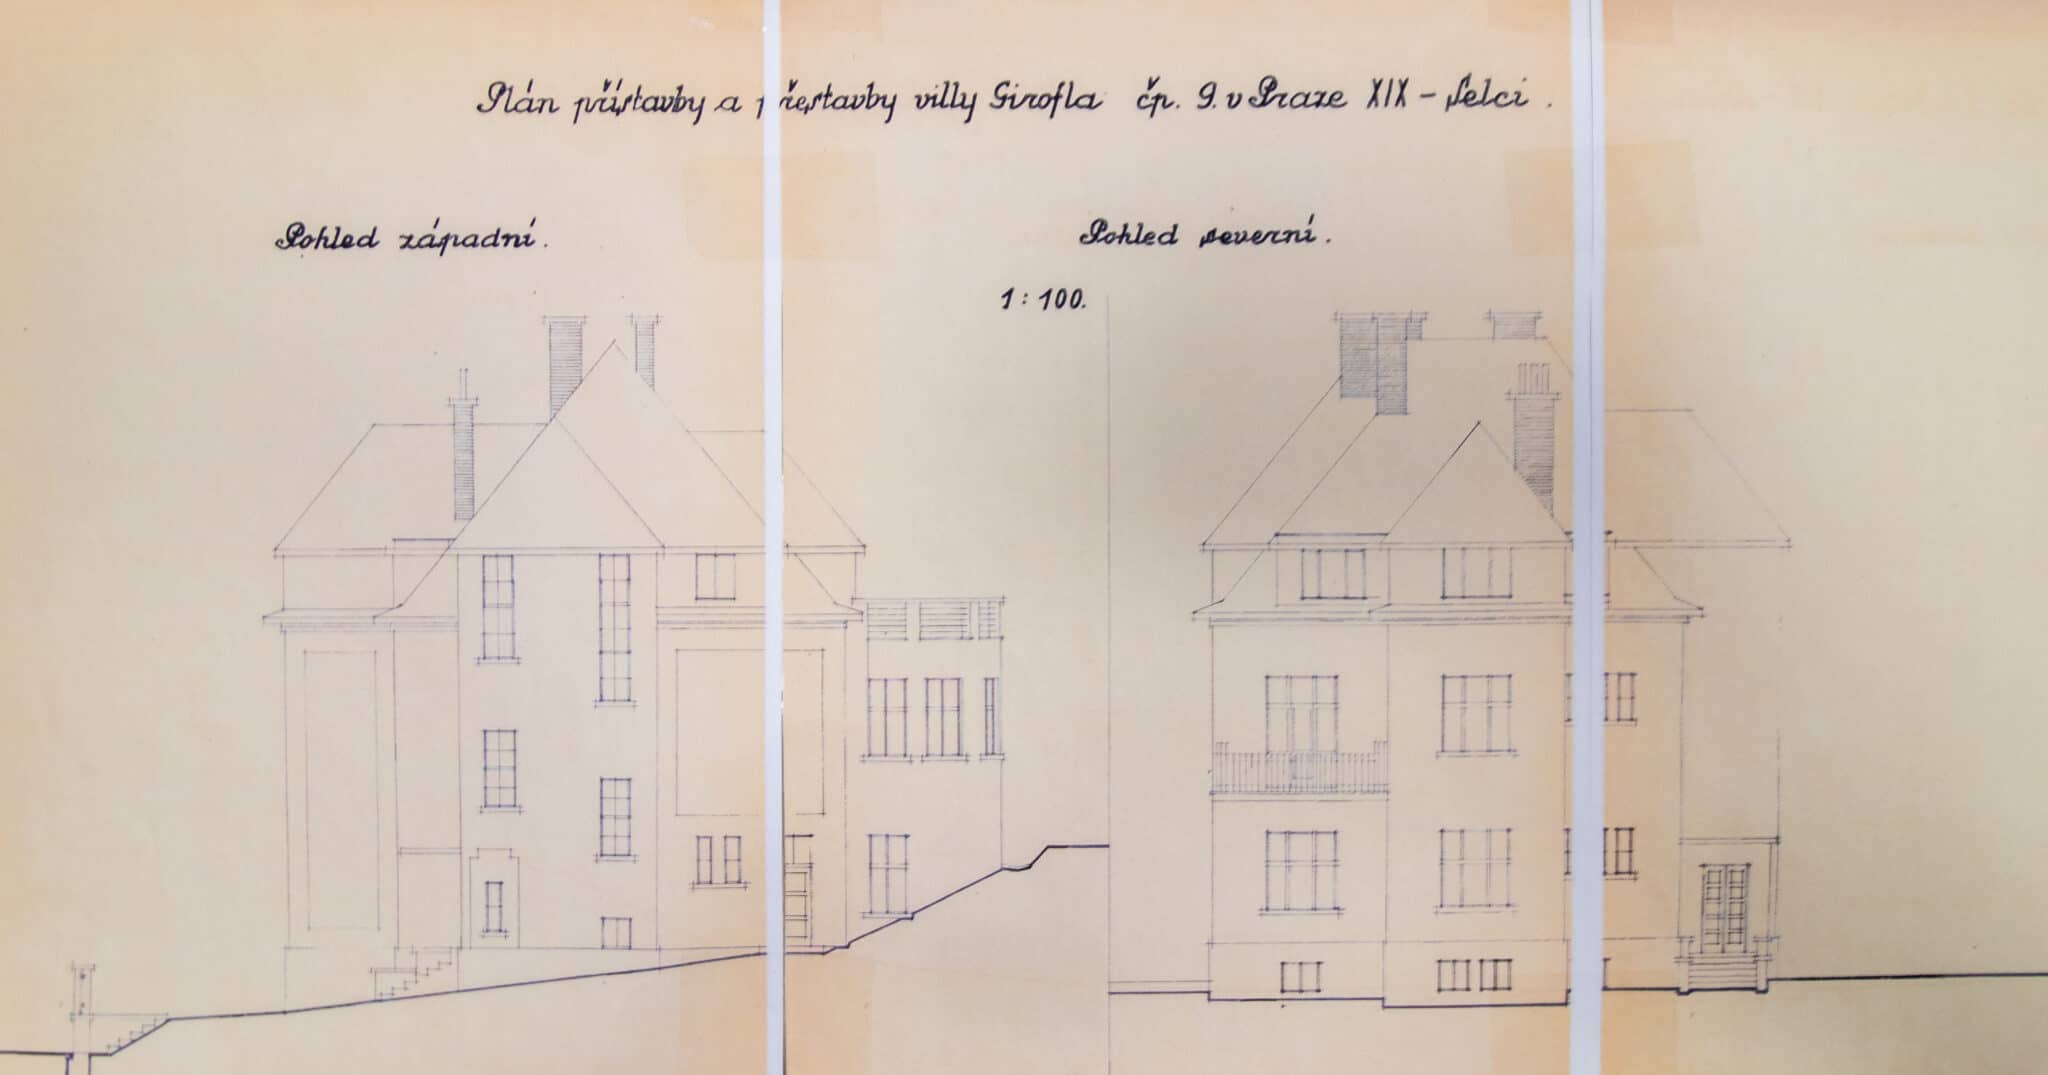 Plán přístavby a přestavby villy Girofla čp. 9. v Praze XIX - Selci.
Pohled západní.
Pohled severní.
1 : 100.